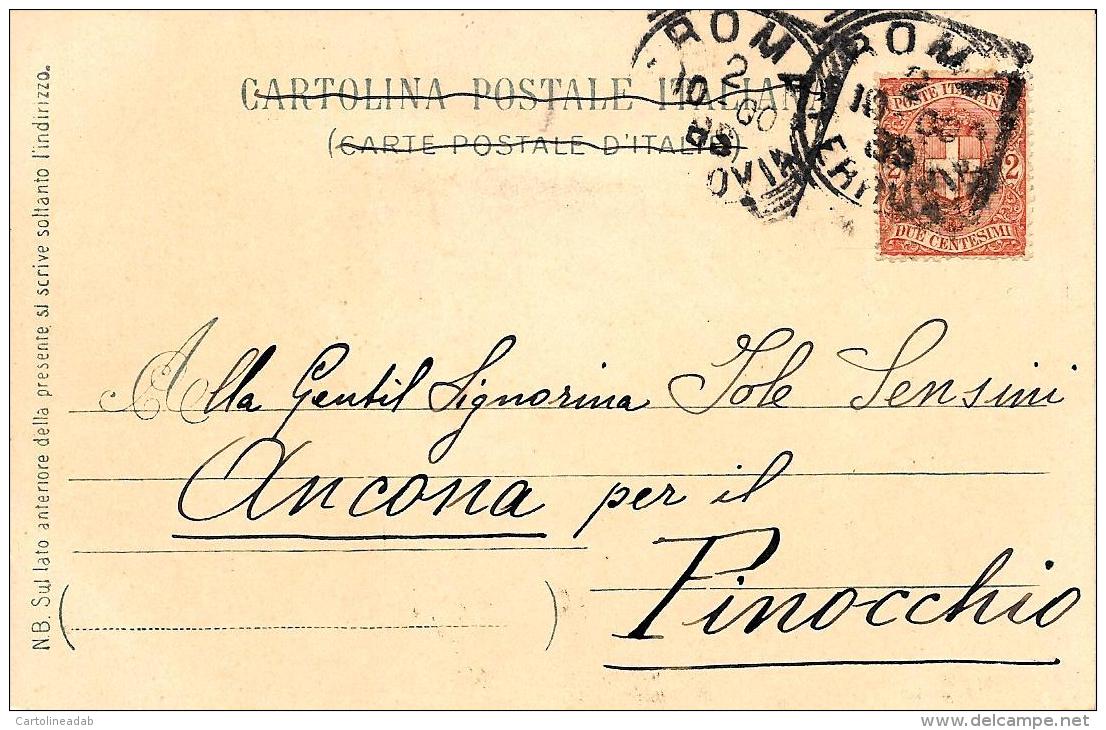 CARTOLINA POSTALE ITALIANA
(CARTE POSTALE D'ITALIE)
ROMA
2
10
FERROVIA
ROMA
10
FERROVIA
POSTE ITALIANE
2 2
DUE CENTESIMI
N.B. Sul lato anteriore della presente si scrive soltanto l'indirizzo.
Alla Gentil Signorina Iole Sensini
Ancona per il
Pinocchio
Cartolineadab
www.delcampe.net